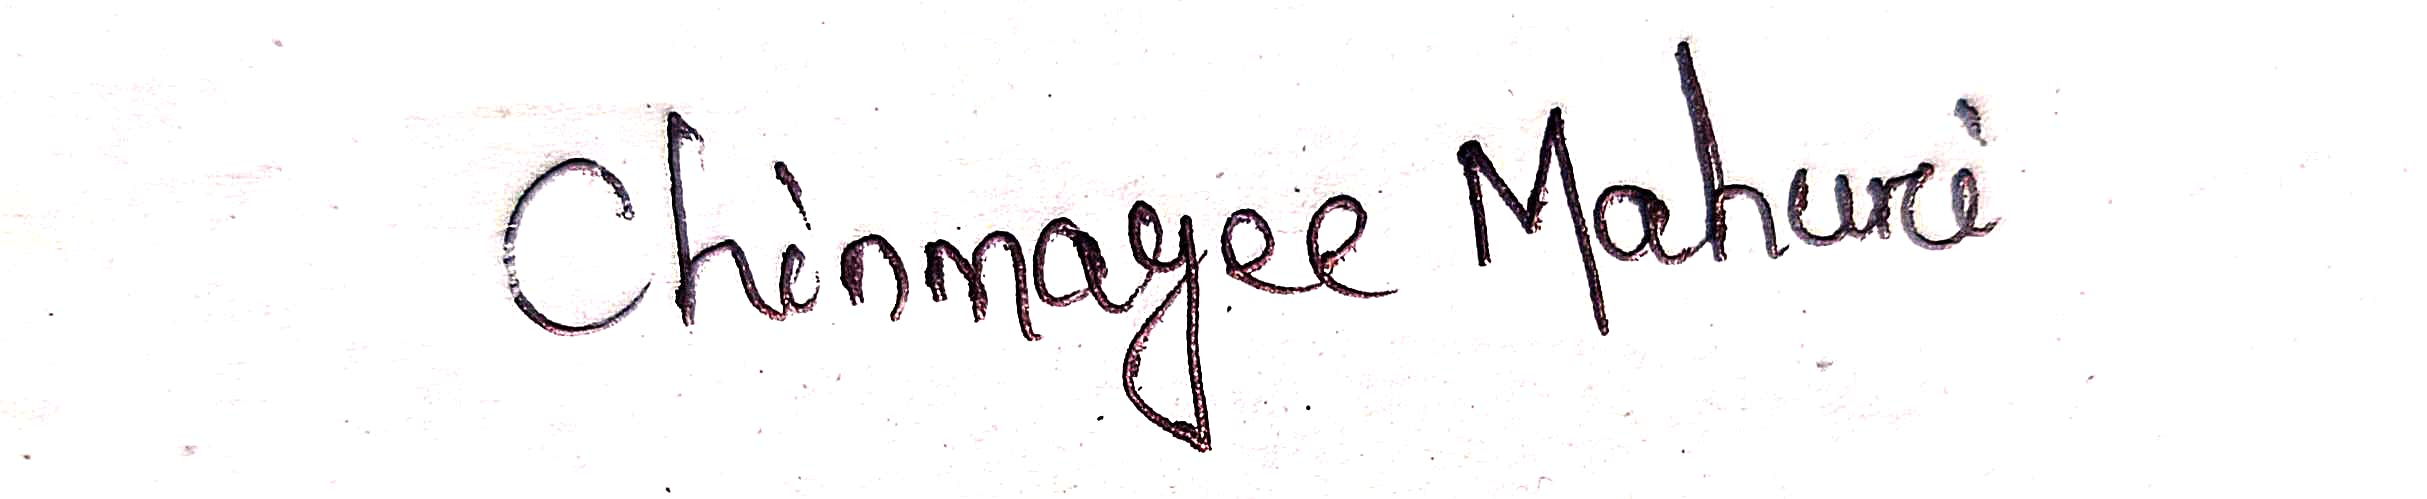 Chinmayee Mahuri